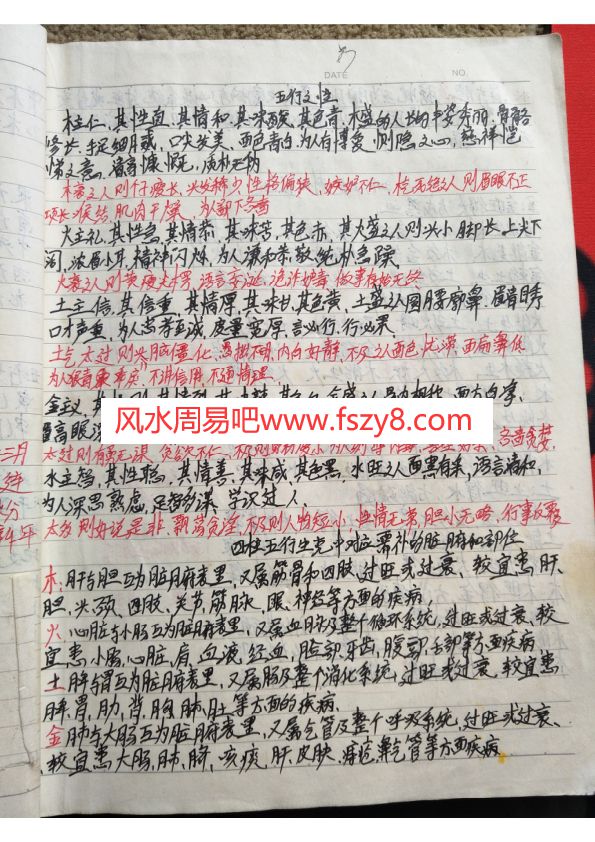 DATE
NO.
五行之性
木主仁、其性直、其情和、其味酸、其色青、木盛的人长的丰姿秀丽、骨骼
修长、手足细腻、口尖发美、面色青白、为人有博爱、恻隐之心、慈祥恺
悌之意、清高慷慨、质朴无伪
木衰之人则个子瘦长、头发稀少性格偏狭、嫉妒不仁、枯死绝之人则眉眼不正
项长喉结、肌肉干燥、为人鄙下吝啬
火主礼、其性急、其情恭、其味苦、其色赤、其火盛之人则头小脚长、上尖下
阔、浓眉小耳、精神闪烁、为人谦和恭敬、纯朴急躁
火衰之人则黄瘦尖楞、语言妄诞、诡诈妒毒、做事有始无终
土主信、其性重、其情厚、其味甘、其色黄、土盛之人圆腰廓鼻、眉清目秀
口才声重、为人忠孝至诚、度量宽厚、言必行、行必果
土气太过则头脑僵化、愚拙不明、内向好静、不及之人面色忧滞、面扁鼻低
为人狠毒乖戾、不讲信用、不通情理
金主义、
风水周易吧www.fszy8.com
太过则有勇无谋、贪欲不仁、
水主智、其性聪、其情善、其味咸、其色黑、水旺之人面黑有采、语言清和、
为人深思熟虑、足智多谋、学识过人
太过则好说是非、飘荡贪淫、不及则人物短小、性情无常、胆小无略、行事反覆
三月
年
四柱五行生克中对应需补的脏腑和部位
木：肝与胆互为脏腑表里、又属筋骨和四肢、过旺或过衰、较宜患肝、
胆、头、颈、四肢、关节、筋脉、眼、神经等方面的疾病
火：心脏与小肠互为脏腑表里、又属血脉及整个循环系统、过旺或过衰、较
宜患小肠、心脏、肩、血液、经血、脸部、牙齿、腹部、舌部等方面疾病
土：脾与胃互为脏腑表里、又属肠及整个消化系统、过旺或过衰、较宜患
脾、胃、肋、背、胸、肺、肚等方面的疾病、
金：肺与大肠互为脏腑表里、又属气管及整个呼吸系统、过旺或过衰、
较宜患大肠、肺、脐、咳痰、肝、皮肤、痔疮、鼻气管等方面疾病